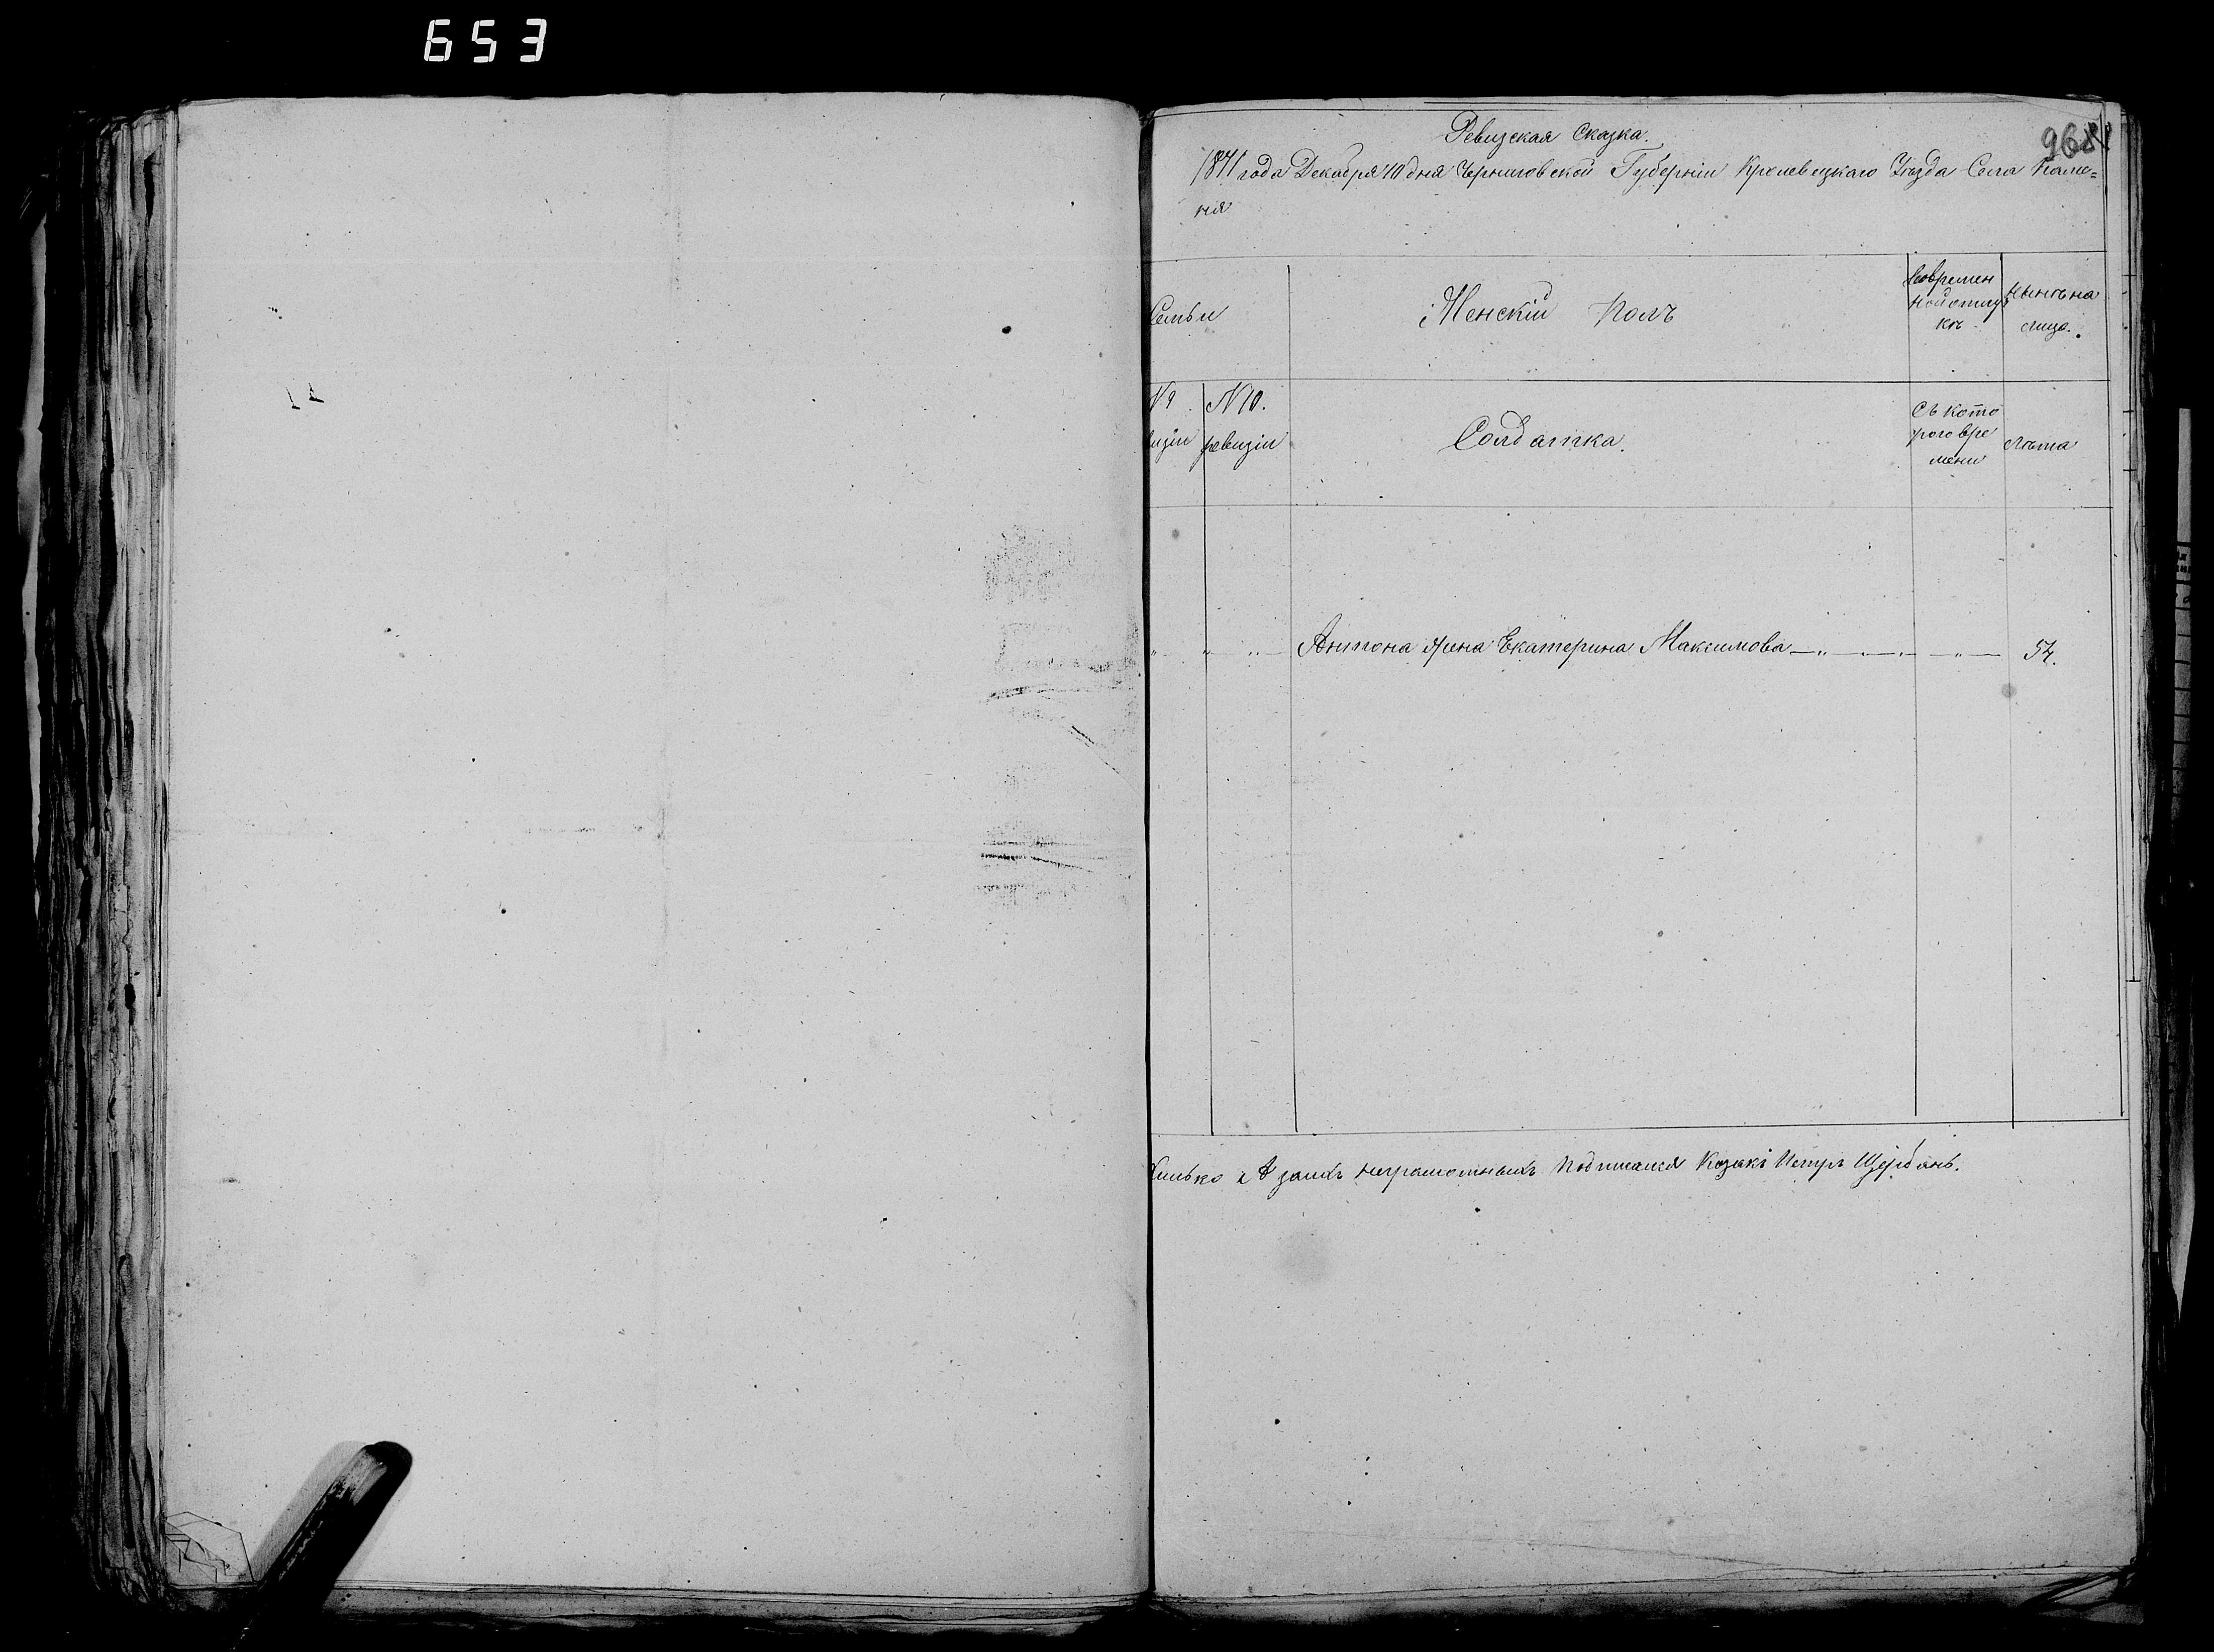 653
968
Ревизская Сказка.
года Декабря 10 дня Черниговской Губерніи Кролевецкаго Уѣзда Села Каме=
ня
Семьи
Женскій Полъ
Во времен
ной отлуч
кѣ
Нынѣ на
лицо.
№ 9
визіи
№ 10.
ревизіи
Солдатка.
Съ кото
раго вре
мени
Лѣта
Антона Жена Екатерина Максимова — " — " — " — 54.
неграмотныхъ подписался Козакъ Петръ Щербань.